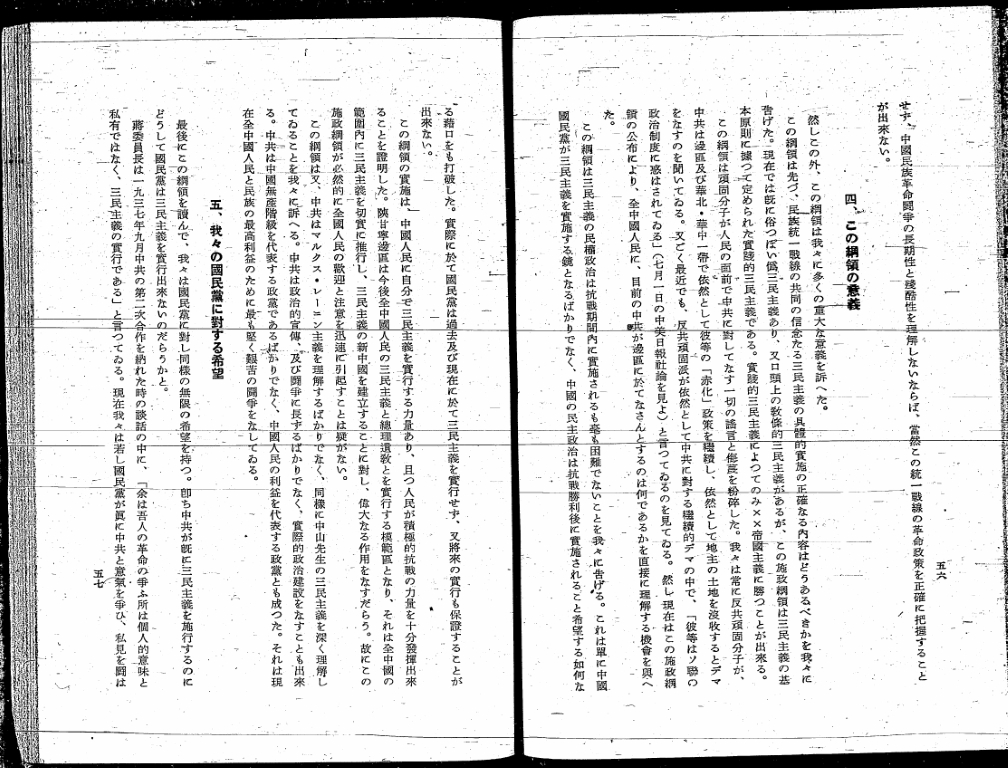 せず、中國民族革命闘爭の長期性と殘酷性を理解しないならば、當然この統一戰線の革命政策を正確に把握すること
が出來ない。
四、この綱領の意義
然しこの外、この綱領は我々に多くの重大な意義を訴へた。
この綱領は先づ、民族統一戰線の共同の信念たる三民主義の具體的實施の正確なる內容はどうあるべきかを我々に
告げた。現在では既に俗つぽい僞三民主義あり、又口頭上の敎條的三民主義があるが、この施政綱領は三民主義の基
本原則に據つて定められた實踐的三民主義である。實踐的三民主義によつてのみ××帝國主義に勝つことが出來る。
この綱領は頑固分子が人民の面前で中共に對してなす一切の謠言と侮蔑を粉碎した。我々は常に反共頑固分子が、
中共は邊區及び華北・華中一帶で依然として彼等の「赤化」政策を繼續し、依然として地主の土地を沒收するとデマ
をなすのを聞いてゐる。又ごく最近でも、反共頑固派が依然として中共に對する繼續的デマの中で、「彼等はソ聯の
政治制度に惑はされてゐる」(七月一日の中美日報社論を見よ)と言つてゐるのを見てゐる。然し現在はこの施政綱
領の公布により、全中國人民に、目前の中共が邊區に於てなさんとするのは何であるかを直接に理解する機會を與へ
た。
この綱領は三民主義の民權政治は抗戰期間內に實施されるも毫も困難でないことを我々に告げる。これは單に中國
國民黨が三民主義を實施する鏡となるばかりでなく、中國の民主政治は抗戰勝利後に實施されること希望する如何な
五六
る藉口をも打破した。實際に於て國民黨は過去及び現在に於て三民主義を實行せず、又將來の實行も保證することが
出來ない。
この綱領の實施は、中國人民に自分で三民主義を實行する力量あり、且つ人民が積極的抗戰の力量を十分發揮出來
ることを證明した。陝甘寧邊區は今後全中國人民の三民主義と總理遺敎とを實行する模範區となり、それは全中國の
範圍內に三民主義を切實に推行し、三民主義の新中國を建立することに對し、偉大なる作用をなすだらう。故にこの
施政綱領が必然的に全國人民の歡迎と注意を迅速に引起すことは疑がない。
この綱領は又、中共はマルクス・レーニン主義を理解するばかりでなく、同樣に中山先生の三民主義を深く理解し
てゐることを我々に訴へる。中共は政治的宣傳、及び闘爭に長ずるばかりでなく、實際的政治建設をなすことも出來
る。中共は中國無產階級を代表する政黨であるばかりでなく、中國人民の利益を代表する政黨とも成つた。それは現
在全中國人民と民族の最高利益のために最も堅く艱苦の闘爭をなしてゐる。
五、我々の國民黨に對する希望
最後にこの綱領を讀んで、我々は國民黨に對し同樣の無限の希望を持つ。卽ち中共が既に三民主義を施行するのに
どうして國民黨は三民主義を實行出來ないのだらうかと。
蔣委員長は一九三七年九月中共の第二次合作を納れた時の談話の中に、「余は吾人の革命の爭ふ所は個人的意味と
私有ではなく、三民主義の實行である」と言つてゐる。現在我々は若し國民黨が眞に中共と意氣を爭ひ、私見を闘は
五七